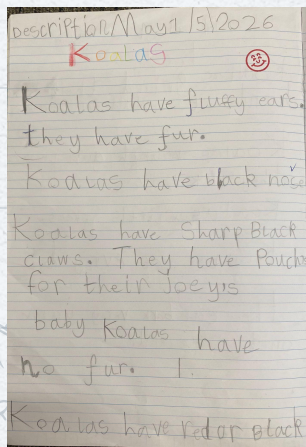 Description May 1/5/2026
Koalas
Koalas have fluffy ears.
they have fur.
Koalas have black noce
Koalas have Sharp Black
claws. They have Pouchs
for their Joey,s
baby Koalas have
no fur. I
Koalas have red or Black